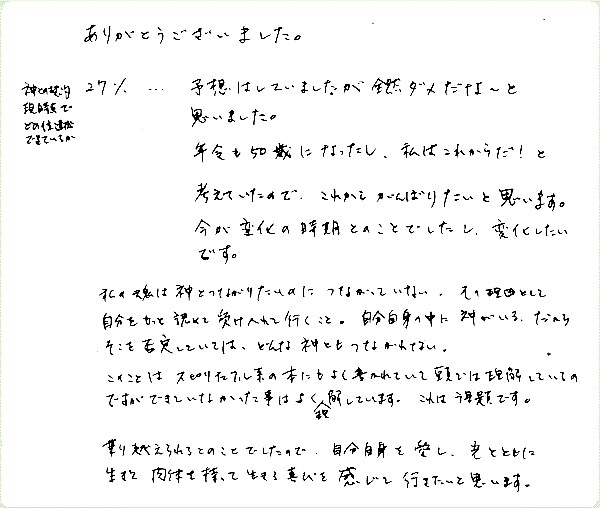 ありがとうございました。
神との契約
現時点で
どの位達成
できているか
27% … 予想はしていましたが全然ダメだな〜と
思いました。
年令も50歳になったし、私はこれからだ!と
考えていたので、これからがんばりたいと思います。
今が変化の時期とのことでしたし、変化したい
です。
私の魂は神とつながりたいのにつながっていない。その理由として
自分をもっと認めて受け入れて行くこと。自分自身の中に神がいる。だから
そこを否定していては、どんな神ともつながれない。
このことはスピリチュアル系の本にもよく書かれていて頭では理解していたの
ですができていなかった事はよく理解しています。これは課題です。
乗り越えられるとのことでしたので、自分自身を愛し、光とともに
生きて肉体を持って生きる喜びを感じて行きたいと思います。